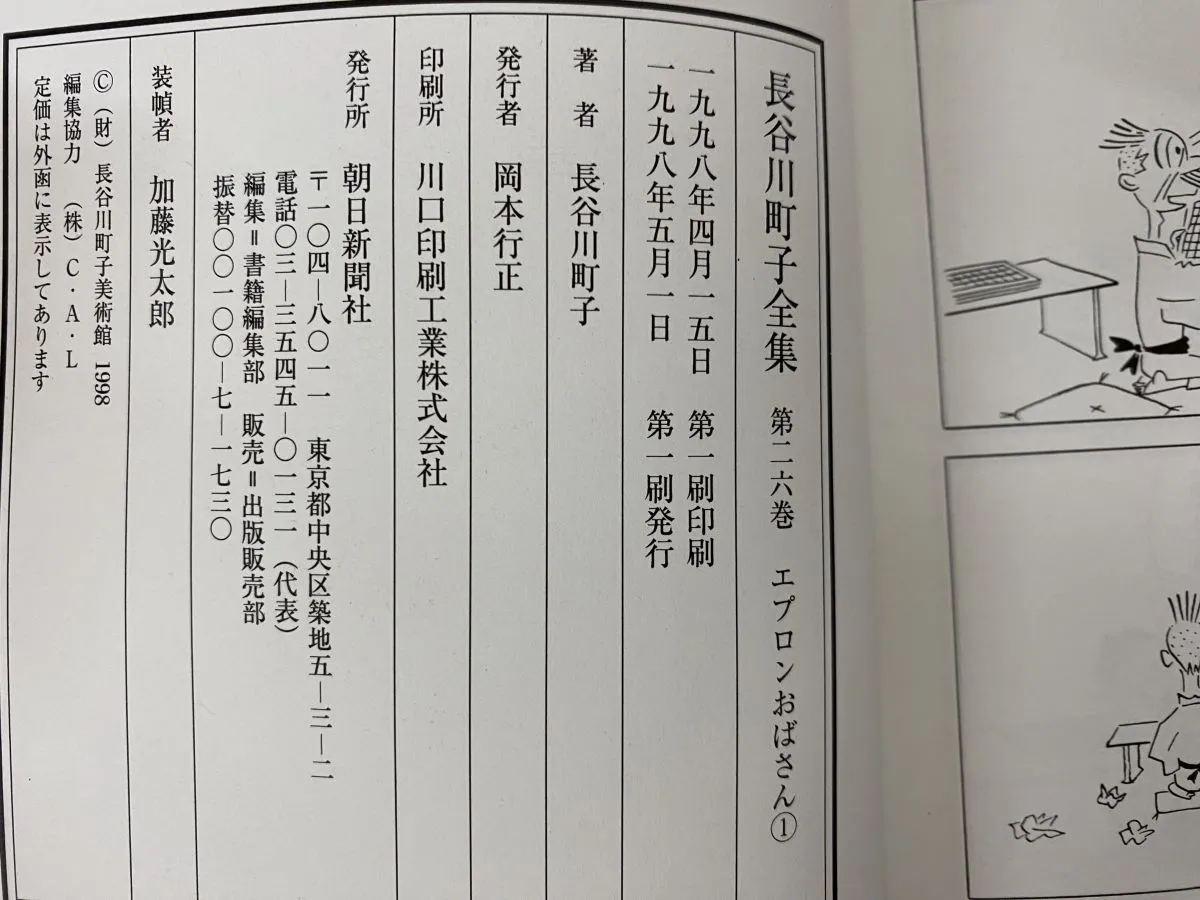 長谷川町子全集 第二六巻 エプロンおばさん①
一九九八年四月一五日 第一刷印刷
一九九八年五月一日 第一刷発行
著者 長谷川町子
発行者 岡本行正
印刷所 川口印刷工業株式会社
発行所 朝日新聞社
〒一〇四―八〇一一 東京都中央区築地五―三―二
電話〇三―三五四五―〇一三一(代表)
編集=書籍編集部 販売=出版販売部
振替〇〇一〇〇―七―一七三〇
装幀者 加藤光太郎
©(財)長谷川町子美術館 1998
編集協力 (株)C・A・L
定価は外函に表示してあります